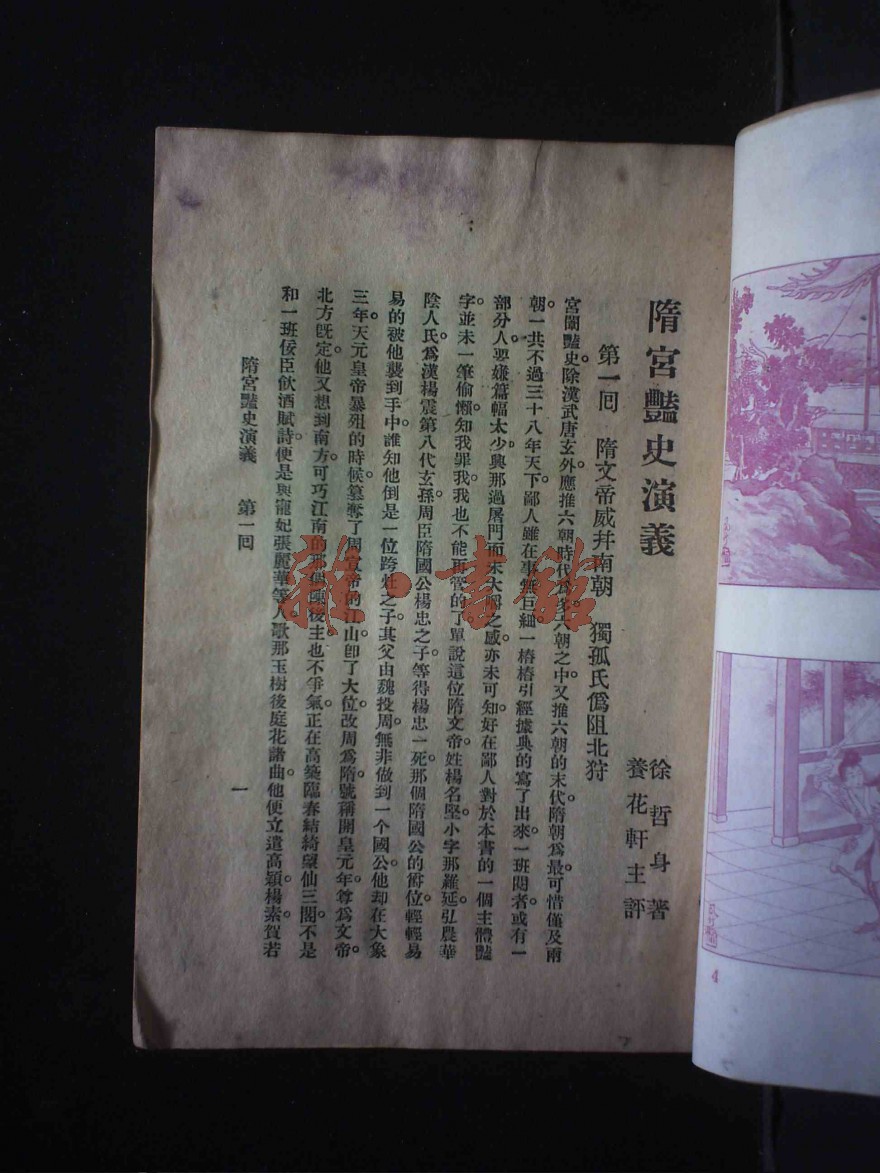 隋宮豔史演義
徐哲身著
養花軒主評
第一囘 隋文帝威幷南朝 獨孤氏僞阻北狩
宮闈豔史。除漢武唐玄外。應推六朝時代爲多。六朝之中。又推六朝的末代隋朝爲最。可惜僅及兩
朝。一共不過三十八年天下。鄙人雖在事無巨細。一樁樁引經據典的寫了出來。一班閱者。或有一
部分人。要嫌篇幅太少。與那過屠門而未大嚼之感。亦未可知。好在鄙人對於本書的一個主體豔
字。並未一筆偷懶。知我罪我。我也不能再管的了。單說這位隋文帝。姓楊名堅。小字那羅延。弘農華
陰人氏。爲漢楊震第八代玄孫。周臣隋國公楊忠之子。等得楊忠一死。那個隋國公的爵位。輕輕易
易的被他襲到手中。誰知他倒是一位跨灶之子。其父由魏投周。無非做到一个國公。他却在大象
三年。天元皇帝暴殂的時候。篡奪了周宣帝的江山。卽了大位。改周爲隋。號稱開皇元年。尊爲文帝。
北方旣定。他又想到南方。可巧江南的那個陳後主也不爭氣。正在高築臨春結綺望仙三閣。不是
和一班佞臣飲酒賦詩。便是與寵妃張麗華等人。歌那玉樹後庭花諸曲。他便立遣高熲。楊素。賀若
隋宮豔史演義 第一囘
一
雜·書館
4